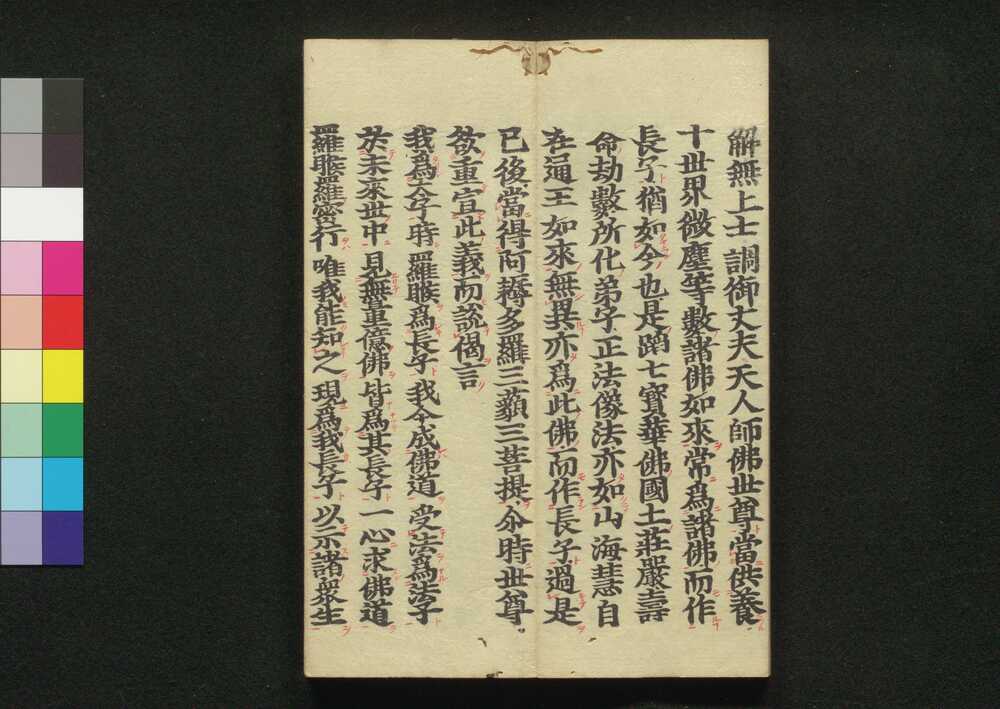 解無上士調御丈夫天人師佛世尊當供養
十世界微塵等數諸佛如來常爲諸佛而作
長子猶如今也是蹈七寶華佛國土莊嚴壽
命劫數所化弟子正法像法亦如山海慧自
在通王如來無異亦爲此佛而作長子過是
已後當得阿耨多羅三藐三菩提尒時世尊
欲重宣此義而說偈言
我爲太子時 羅睺爲長子 我今成佛道 受法爲法子
於未來世中 見無量億佛 皆爲其長子 一心求佛道
羅睺羅密行 唯我能知之 現爲我長子 以示諸衆生